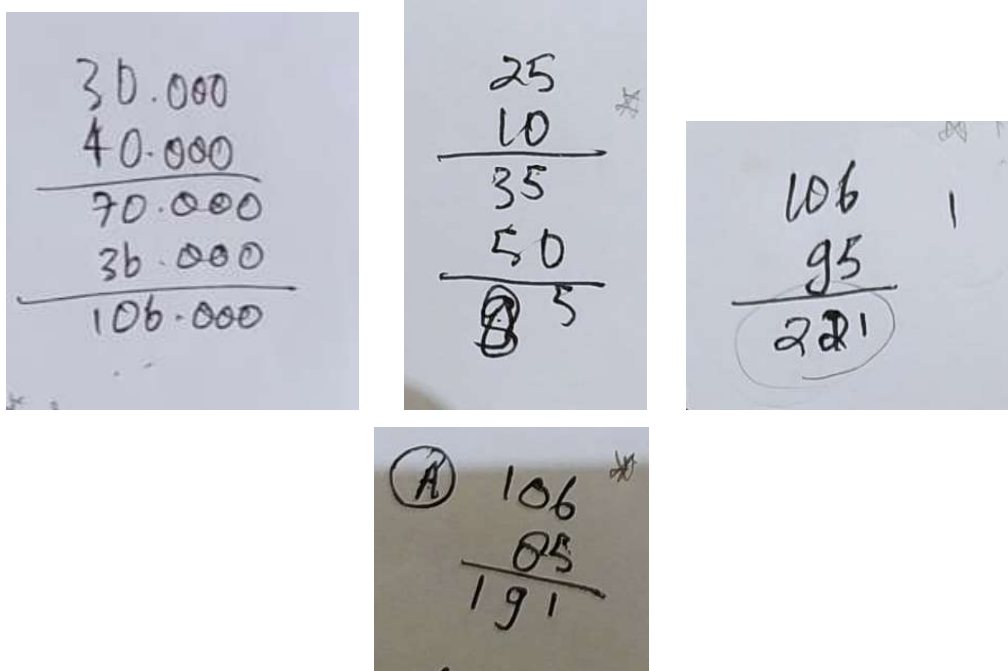 30.000
40.000
70.000
36.000
106.000
25
10
35
50
8 5
106
95
221
1
A
106
85
191